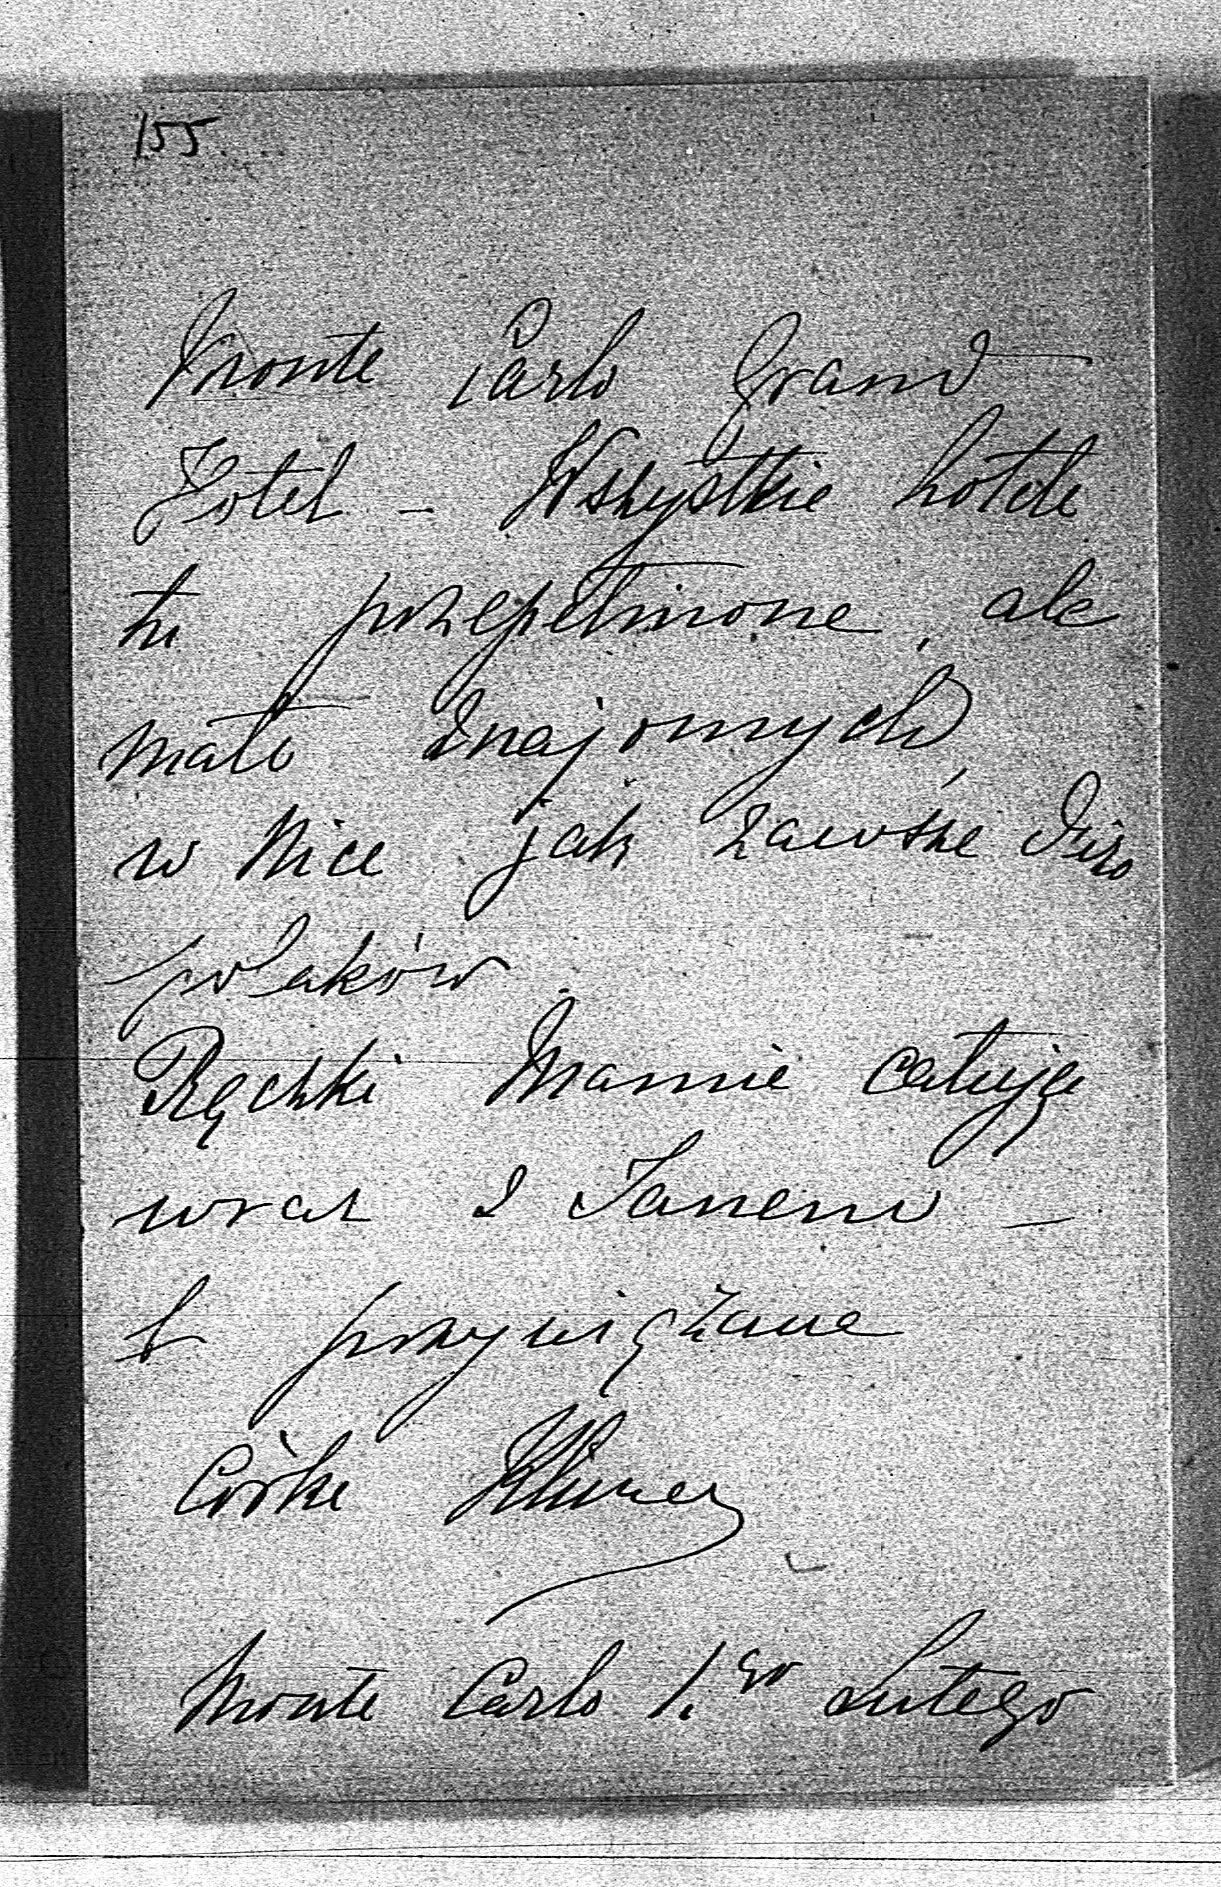 155
Monte Carlo Grand
Hotel – Wszystkie hotele
tu przepełnione, ale
mało znajomych,
w Nice jak zawsze dużo
polaków.
Rączki Mamie całuję
wraz z Janem –
b przywiązane
Córka
Monte Carlo 1.go Lutego